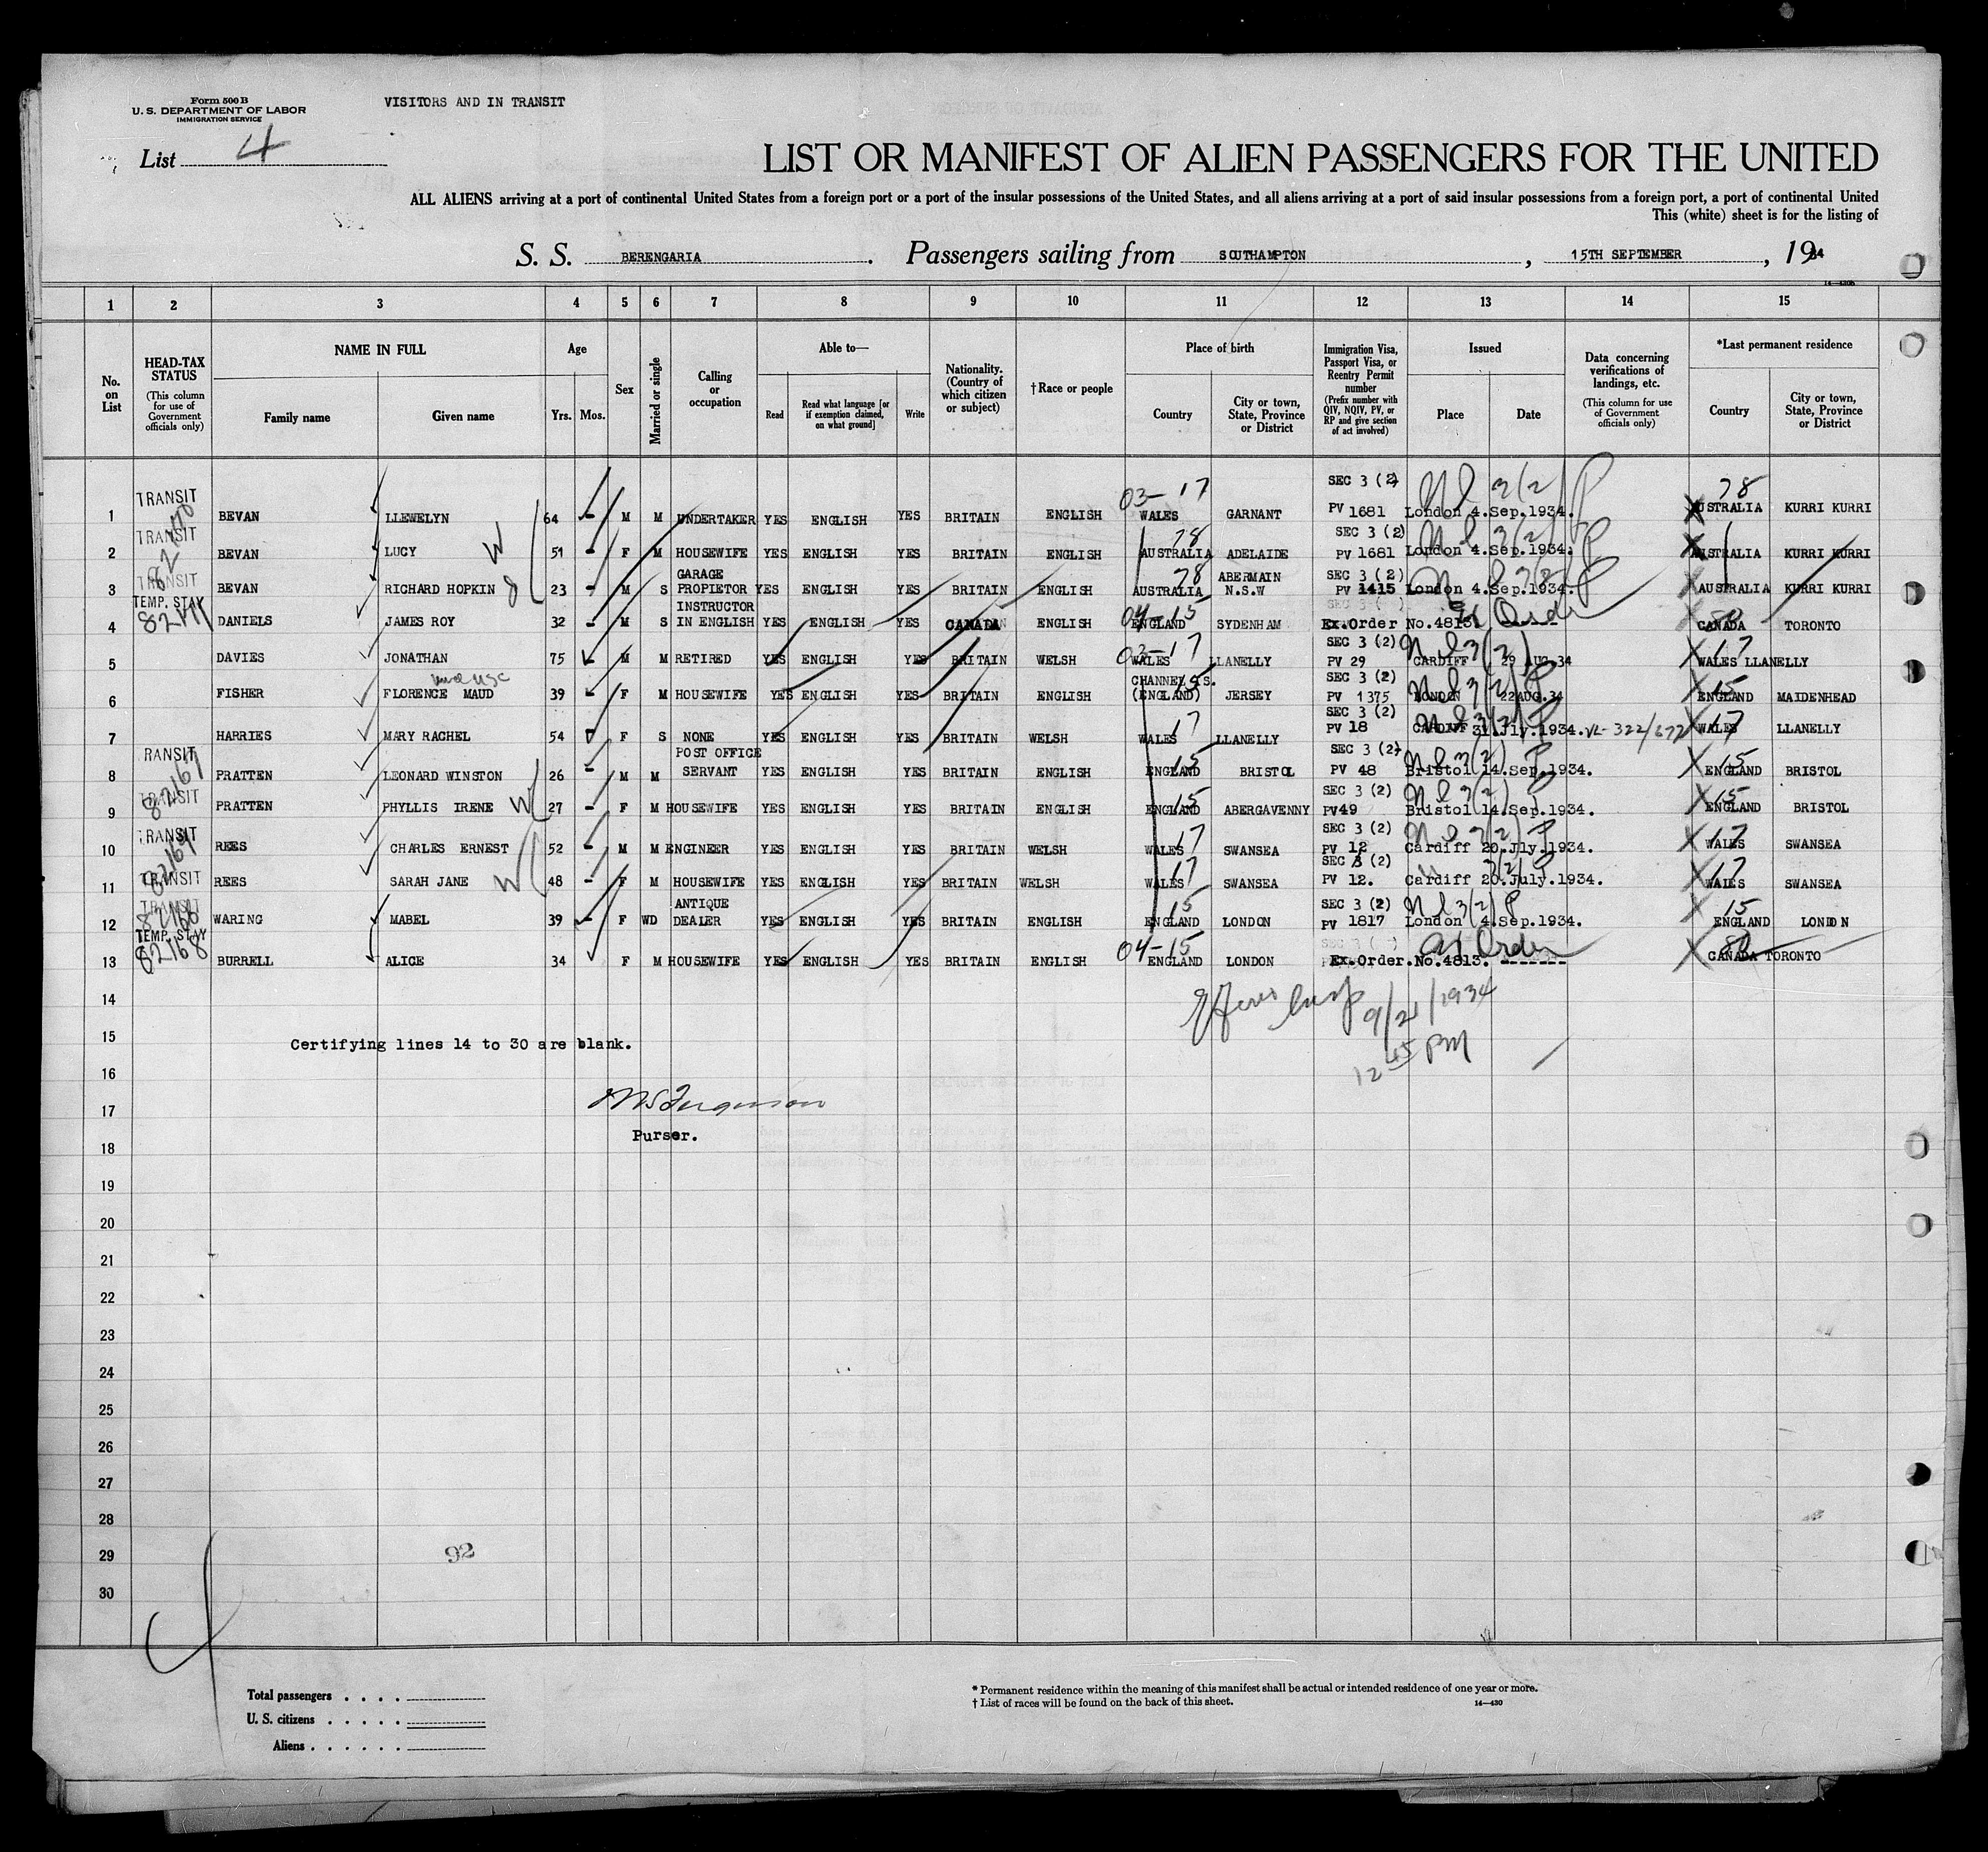 Form 500 B
U. S. DEPARTMENT OF LABOR
IMMIGRATION SERVICE
VISITORS AND IN TRANSIT
List 4
LIST OR MANIFEST OF ALIEN PASSENGERS FOR THE UNITED
ALL ALIENS arriving at a port of continental United States from a foreign port or a port of the insular possessions of the United States, and all aliens arriving at a port of said insular possessions from a foreign port, a port of continental United
This (white) sheet is for the listing of
S. S. BERENGARIA. Passengers sailing from SOUTHAMPTON, 15TH SEPTEMBER, 1934
1 2 3 4 5 6 7 8 9 10 11 12 13 14 15
No. on List
HEAD-TAX STATUS
(This column for use of Government officials only)
NAME IN FULL
Family name Given name
Age
Yrs. Mos.
Sex
Married or single
Calling or occupation
Able to—
Read
Read what language [or if exemption claimed, on what ground]
Write
Nationality. (Country of which citizen or subject)
† Race or people
Place of birth
Country
City or town, State, Province or District
Immigration Visa, Passport Visa, or Reentry Permit number
(Prefix number with QIV, NQIV, PV, or RP and give section of act involved)
Issued
Place Date
Data concerning verifications of landings, etc.
(This column for use of Government officials only)
*Last permanent residence
Country
City or town, State, Province or District
1 TRANSIT BEVAN LLEWELYN 64 - M M UNDERTAKER YES ENGLISH YES BRITAIN ENGLISH 03-17 WALES GARNANT SEC 3 (2) PV 1681 London 4.Sep.1934. 78 AUSTRALIA KURRI KURRI
2 TRANSIT BEVAN LUCY W 51 - F M HOUSEWIFE YES ENGLISH YES BRITAIN ENGLISH 78 AUSTRALIA ADELAIDE SEC 3 (2) PV 1681 London 4.Sep.1934. AUSTRALIA KURRI KURRI
3 TRANSIT BEVAN RICHARD HOPKIN 23 - M S GARAGE PROPIETOR YES ENGLISH YES BRITAIN ENGLISH 78 AUSTRALIA ABERMAIN N.S.W SEC 3 (2) PV 1415 London 4.Sep.1934. AUSTRALIA KURRI KURRI
4 TEMP. STAY DANIELS JAMES ROY 32 - M S INSTRUCTOR IN ENGLISH YES ENGLISH YES CANADA ENGLISH 04-15 ENGLAND SYDENHAM Ex.Order No.4813. Ex Order CANADA TORONTO
5 DAVIES JONATHAN 75 M M RETIRED YES ENGLISH YES BRITAIN WELSH 03-17 WALES LLANELLY SEC 3 (2) PV 29 CARDIFF 29 AUG.34 17 WALES LLANELLY
6 FISHER FLORENCE MAUD 39 - F M HOUSEWIFE YES ENGLISH YES BRITAIN ENGLISH CHANNEL IS. (ENGLAND) JERSEY SEC 3 (2) PV 1375 LONDON 22AUG.34 15 ENGLAND MAIDENHEAD
7 HARRIES MARY RACHEL 54 F S NONE YES ENGLISH YES BRITAIN WELSH 17 WALES LLANELLY SEC 3 (2) PV 18 CARDIFF 31.Jly.1934. VL-322/672 17 WALES LLANELLY
8 RANSIT PRATTEN LEONARD WINSTON 26 - M M POST OFFICE SERVANT YES ENGLISH YES BRITAIN ENGLISH 15 ENGLAND BRISTOL SEC 3 (2) PV 48 Bristol 14.Sep.1934. 15 ENGLAND BRISTOL
9 TRANSIT PRATTEN PHYLLIS IRENE W 27 - F M HOUSEWIFE YES ENGLISH YES BRITAIN ENGLISH 15 ENGLAND ABERGAVENNY SEC 3 (2) PV49 Bristol 14.Sep.1934. 15 ENGLAND BRISTOL
10 TRANSIT REES CHARLES ERNEST 52 - M M ENGINEER YES ENGLISH YES BRITAIN WELSH 17 WALES SWANSEA SEC 3 (2) PV 12 Cardiff 20.Jly.1934. 17 WALES SWANSEA
11 TRANSIT REES SARAH JANE W 48 - F M HOUSEWIFE YES ENGLISH YES BRITAIN WELSH 17 WALES SWANSEA SEC 3 (2) PV 12. Cardiff 20.July.1934. 17 WALES SWANSEA
12 TRANSIT WARING MABEL 39 - F WD ANTIQUE DEALER YES ENGLISH YES BRITAIN ENGLISH 15 ENGLAND LONDON SEC 3 (2) PV 1817 London 4.Sep.1934. 15 ENGLAND LONDON
13 TEMP. STAY 82168 BURRELL ALICE 34 F M HOUSEWIFE YES ENGLISH YES BRITAIN ENGLISH 04-15 ENGLAND LONDON Ex.Order.No.4813. ------- CANADA TORONTO
14
9/21/1934
15 Certifying lines 14 to 30 are blank.
12 45 PM
16
17
Purser.
18
19
20
21
22
23
24
25
26
27
28
29 92
30
Total passengers
U. S. citizens
Aliens
* Permanent residence within the meaning of this manifest shall be actual or intended residence of one year or more.
† List of races will be found on the back of this sheet. 14—430